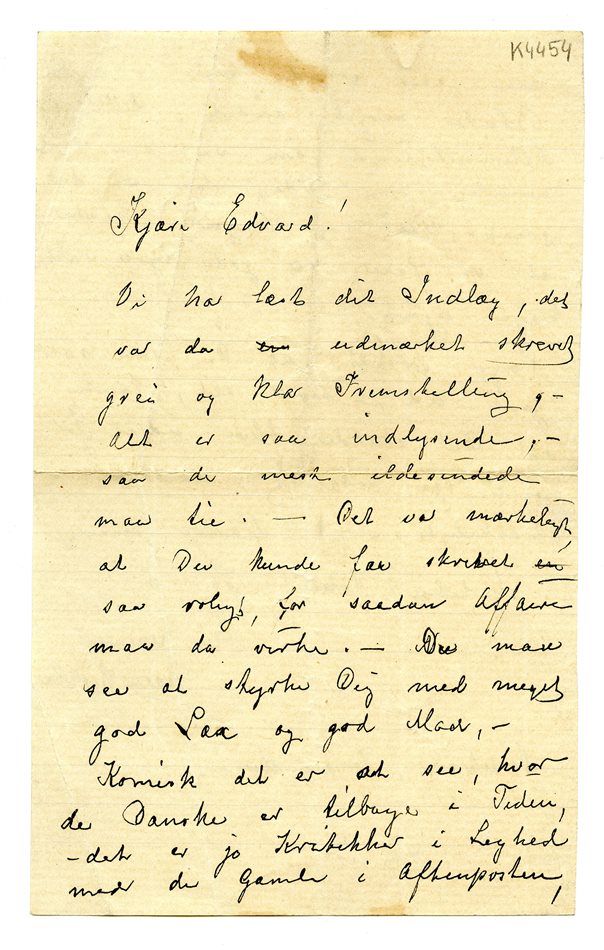 K4454
Kjære Edvard!
Vi har læst dit Indlæg, det
var da udmærket skrevet
grei og klar Fremstilling, –
Alt er saa indlysende, –
saa de mest ildesindede
maa tie. – Det var mærkeligt,
at Du kunde faa skrevet
saa roligt, for saadan Affaire
maa da virke. – Du maa
see at styrke Dig med meget
god og god Mad, –
Komisk det er at see, hvor
de Danske er tilbage i Tiden,
– det er jo Kritikker i Lighed
med de Gamle i Aftenposten,